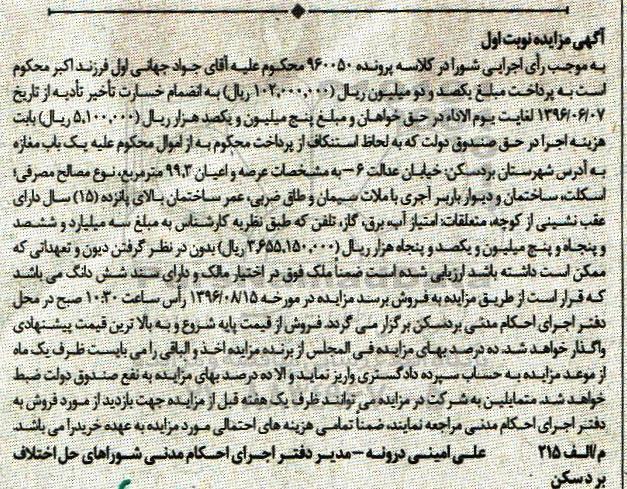 آگهی مزایده نوبت اول
به موجب رأی اجرایی شورا در کلاسه پرونده ۹۶۰۰۵۰ محکوم علیه آقای جواد جهانی اول فرزند اکبر محکوم
است به پرداخت مبلغ یکصد و دو میلیون ریال (۱۰۲,۰۰۰,۰۰۰ ریال) به انضمام خسارت تأخیر تأدیه از تاریخ
۱۳۹۶/۰۶/۰۷ لغایت یوم الاداء در حق خواهان و مبلغ پنج میلیون و یکصد هزار ریال (۵,۱۰۰,۰۰۰ ریال) بابت
هزینه اجرا در حق صندوق دولت که به لحاظ استنکاف از پرداخت محکوم به از اموال محکوم علیه یک باب مغازه
به آدرس شهرستان بردسکن: خیابان عدالت ۶ – به مشخصات عرصه و اعیان ۹۹.۳ مترمربع، نوع مصالح مصرفی:
اسکلت، ساختمان و دیوار باربر آجری با ملات سیمان و طاق ضربی، عمر ساختمان بالای پانزده (۱۵) سال دارای
عقب نشینی از کوچه، متعلقات: امتیاز آب، برق، گاز، تلفن که طبق نظریه کارشناس به مبلغ سه میلیارد و ششصد
و پنجاه و پنج میلیون و یکصد و پنجاه هزار ریال (۳,۶۵۵,۱۵۰,۰۰۰ ریال) بدون در نظر گرفتن دیون و تعهداتی که
ممکن است داشته باشد ارزیابی شده است ضمناً ملک فوق در اختیار مالک و دارای سند شش دانگ می باشد
که قرار است از طریق مزایده به فروش برسد مزایده در مورخه ۱۳۹۶/۰۸/۱۵ رأس ساعت ۱۰:۳۰ صبح در محل
دفتر اجرای احکام مدنی بردسکن برگزار می گردد. فروش از قیمت پایه شروع و به بالا ترین قیمت پیشنهادی
واگذار خواهد شد. ده درصد بهای مزایده فی المجلس از برنده مزایده اخذ و الباقی را می بایست ظرف یک ماه
از موعد مزایده به حساب سپرده دادگستری واریز نماید و الا ده درصد بهای مزایده به نفع صندوق دولت ضبط
خواهد شد. متمایلین به شرکت در مزایده می توانند ظرف یک هفته قبل از مزایده جهت بازدید از مورد فروش به
دفتر اجرای احکام مدنی مراجعه نمایند، ضمناً تمامی هزینه های احتمالی مورد مزایده به عهده خریدار می باشد.
م/الف ۲۱۵ علی امینی درونه – مدیر دفتر اجرای احکام مدنی شوراهای حل اختلاف
بردسکن